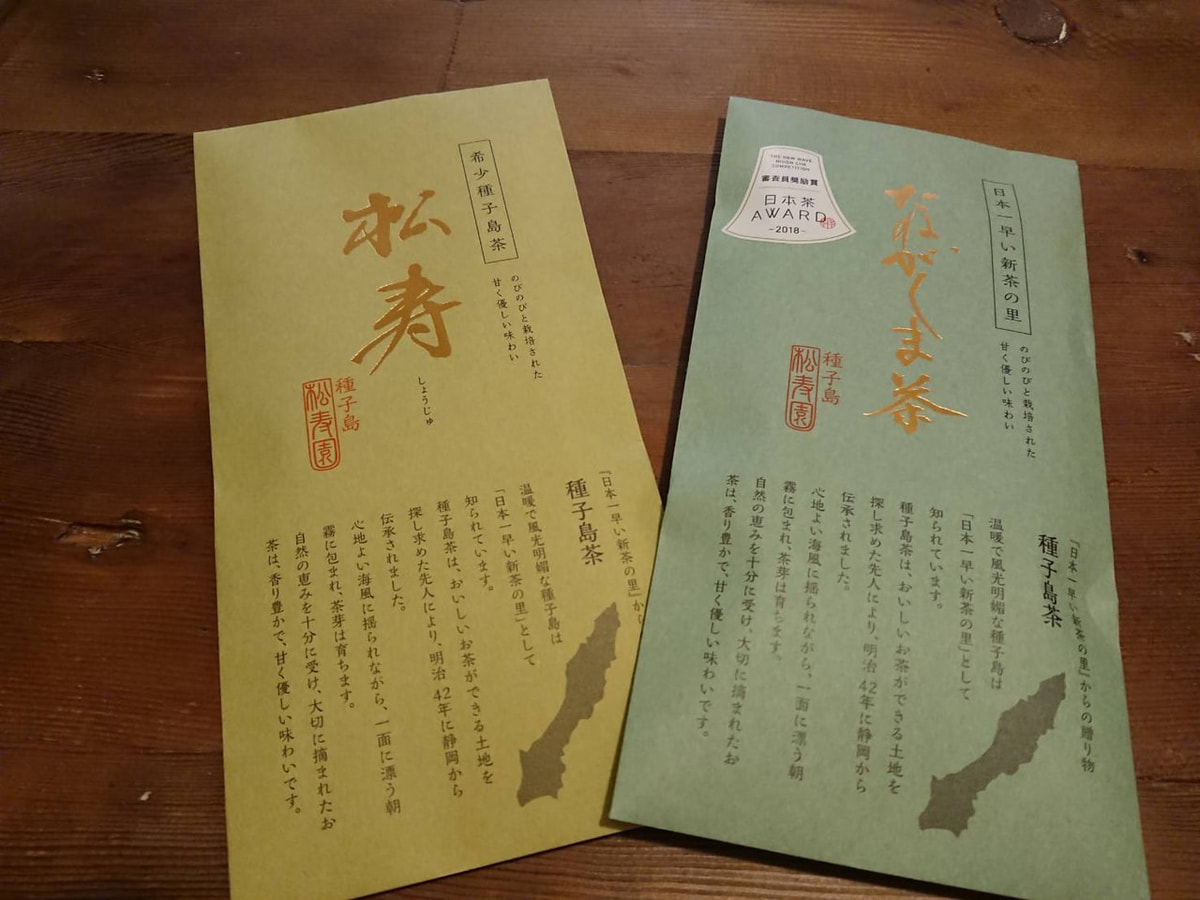 希少種子島茶
のびのびと栽培された
甘く優しい味わい
松寿
しょうじゅ
種子島
松寿園
『日本一早い新茶の里』か
種子島茶
温暖で風光明媚な種子島は
「日本一早い新茶の里」として
知られています。
種子島茶は、おいしいお茶ができる土地を
探し求めた先人により、明治42年に静岡から
伝承されました。
心地よい海風に揺られながら、一面に漂う朝
霧に包まれ、茶芽は育ちます。
自然の恵みを十分に受け、大切に摘まれたお
茶は、香り豊かで、甘く優しい味わいです。
THE NEW WAVE
NIHON CHA
COMPETITION
審査員奨励賞
日本茶
AWARD
-2018-
日本一早い新茶の里
のびのびと栽培された
甘く優しい味わい
たねがしま茶
種子島
松寿園
『日本一早い新茶の里』からの贈り物
種子島茶
温暖で風光明媚な種子島は
「日本一早い新茶の里」として
知られています。
種子島茶は、おいしいお茶ができる土地を
探し求めた先人により、明治42年に静岡から
伝承されました。
心地よい海風に揺られながら、一面に漂う朝
霧に包まれ、茶芽は育ちます。
自然の恵みを十分に受け、大切に摘まれたお
茶は、香り豊かで、甘く優しい味わいです。